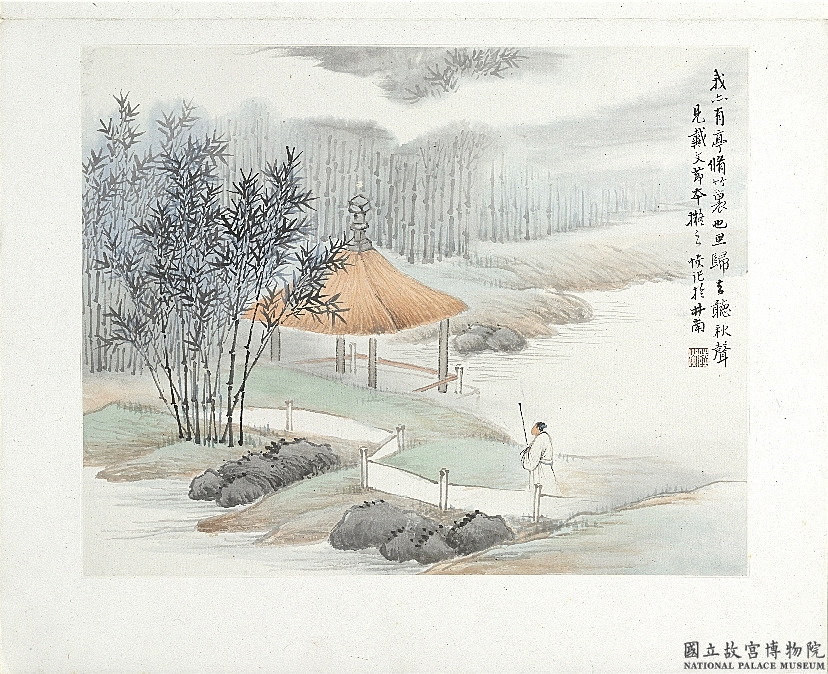 我亦有亭脩竹裏也思歸去聽秋聲
見戴文節本擬之
作於井南
國立故宮博物院
NATIONAL PALACE MUSEUM